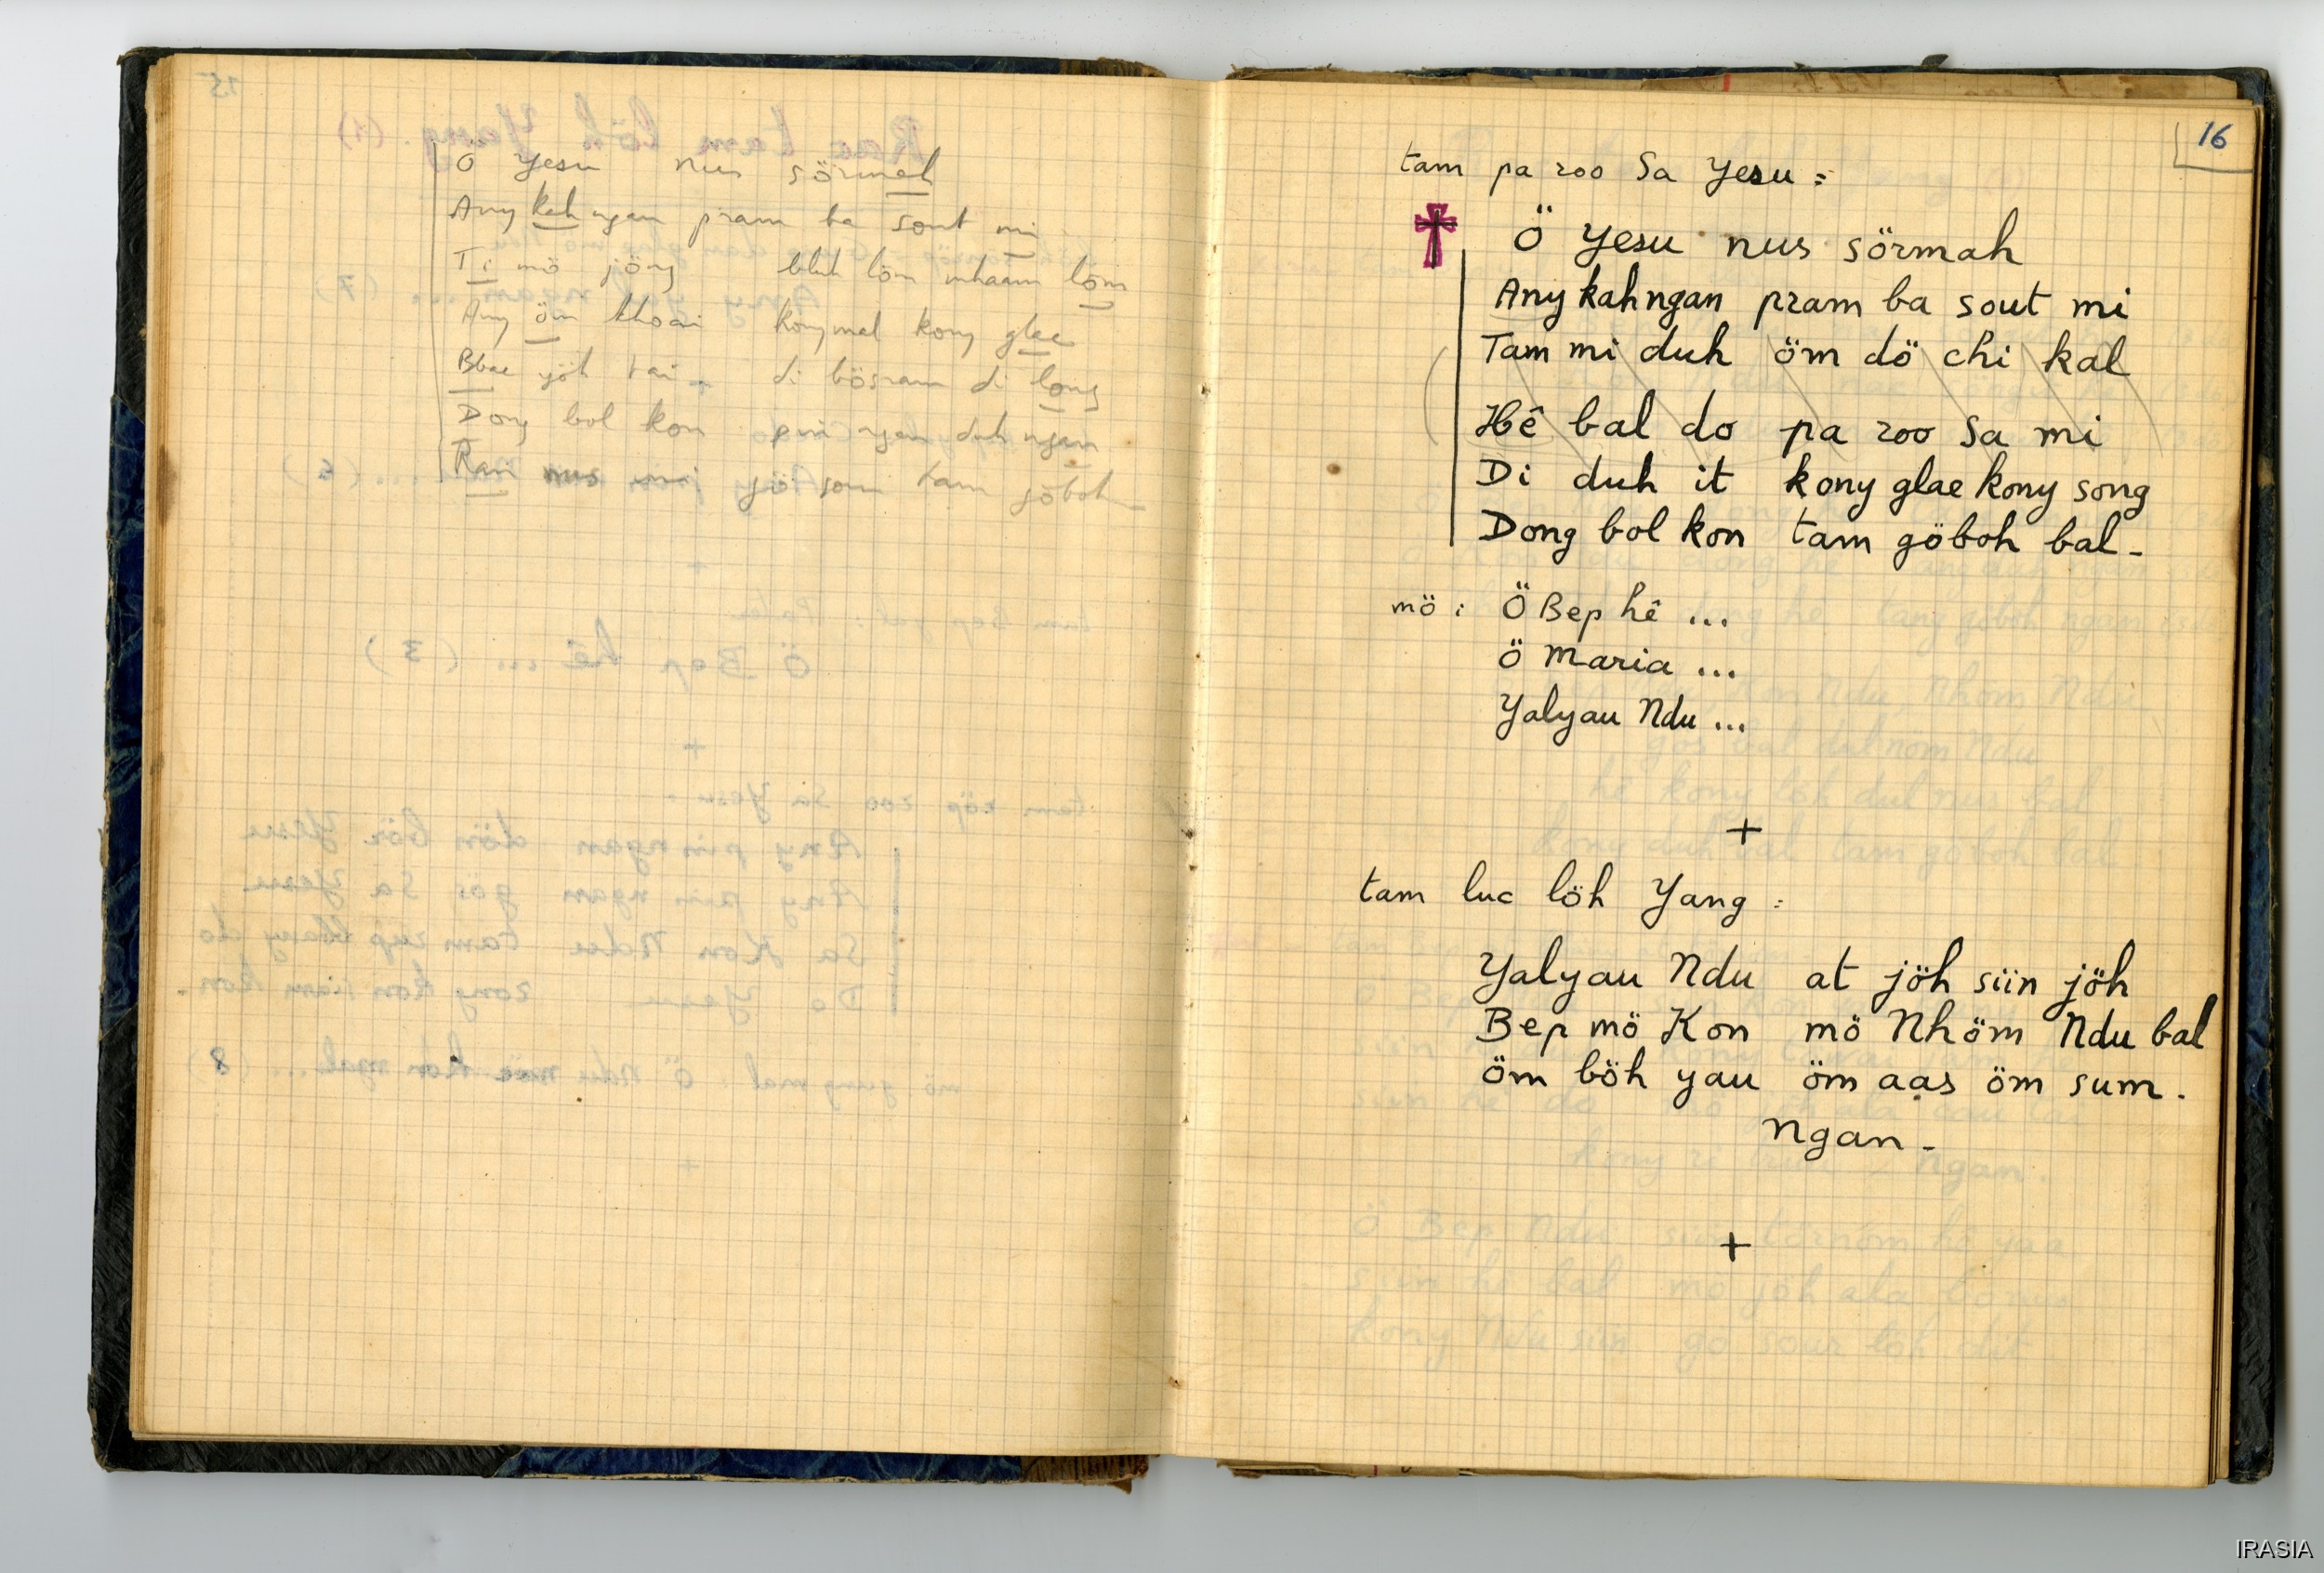 Ö Yesu nus sörmah
Any kah ngan pram ba sout mi
Ti mö jöng bluh löm mhaam löm
Any öm khoai kony mal kony glae
Bbae yöh tai di bösram di long
Dong bol kon duh ngan
Rai nus mi gö tam göboh
16
tam pa roo Sa Yesu :
Ö Yesu nus sörmah
Any kah ngan pram ba sout mi
Tam mi duh öm dö chi kal
Hê bal do pa roo Sa mi
Di duh it kony glae kony song
Dong bol kon tam göboh bal -
mö : Ö Bep hê ...
Ö Maria ...
Yalyau Ndu ...
+
tam luc löh Yang :
Yalyau Ndu at jöh siin jöh
Bep mö Kon mö Nhöm Ndu bal
öm böh yau öm aas öm sum .
Ngan -
+
IRASIA